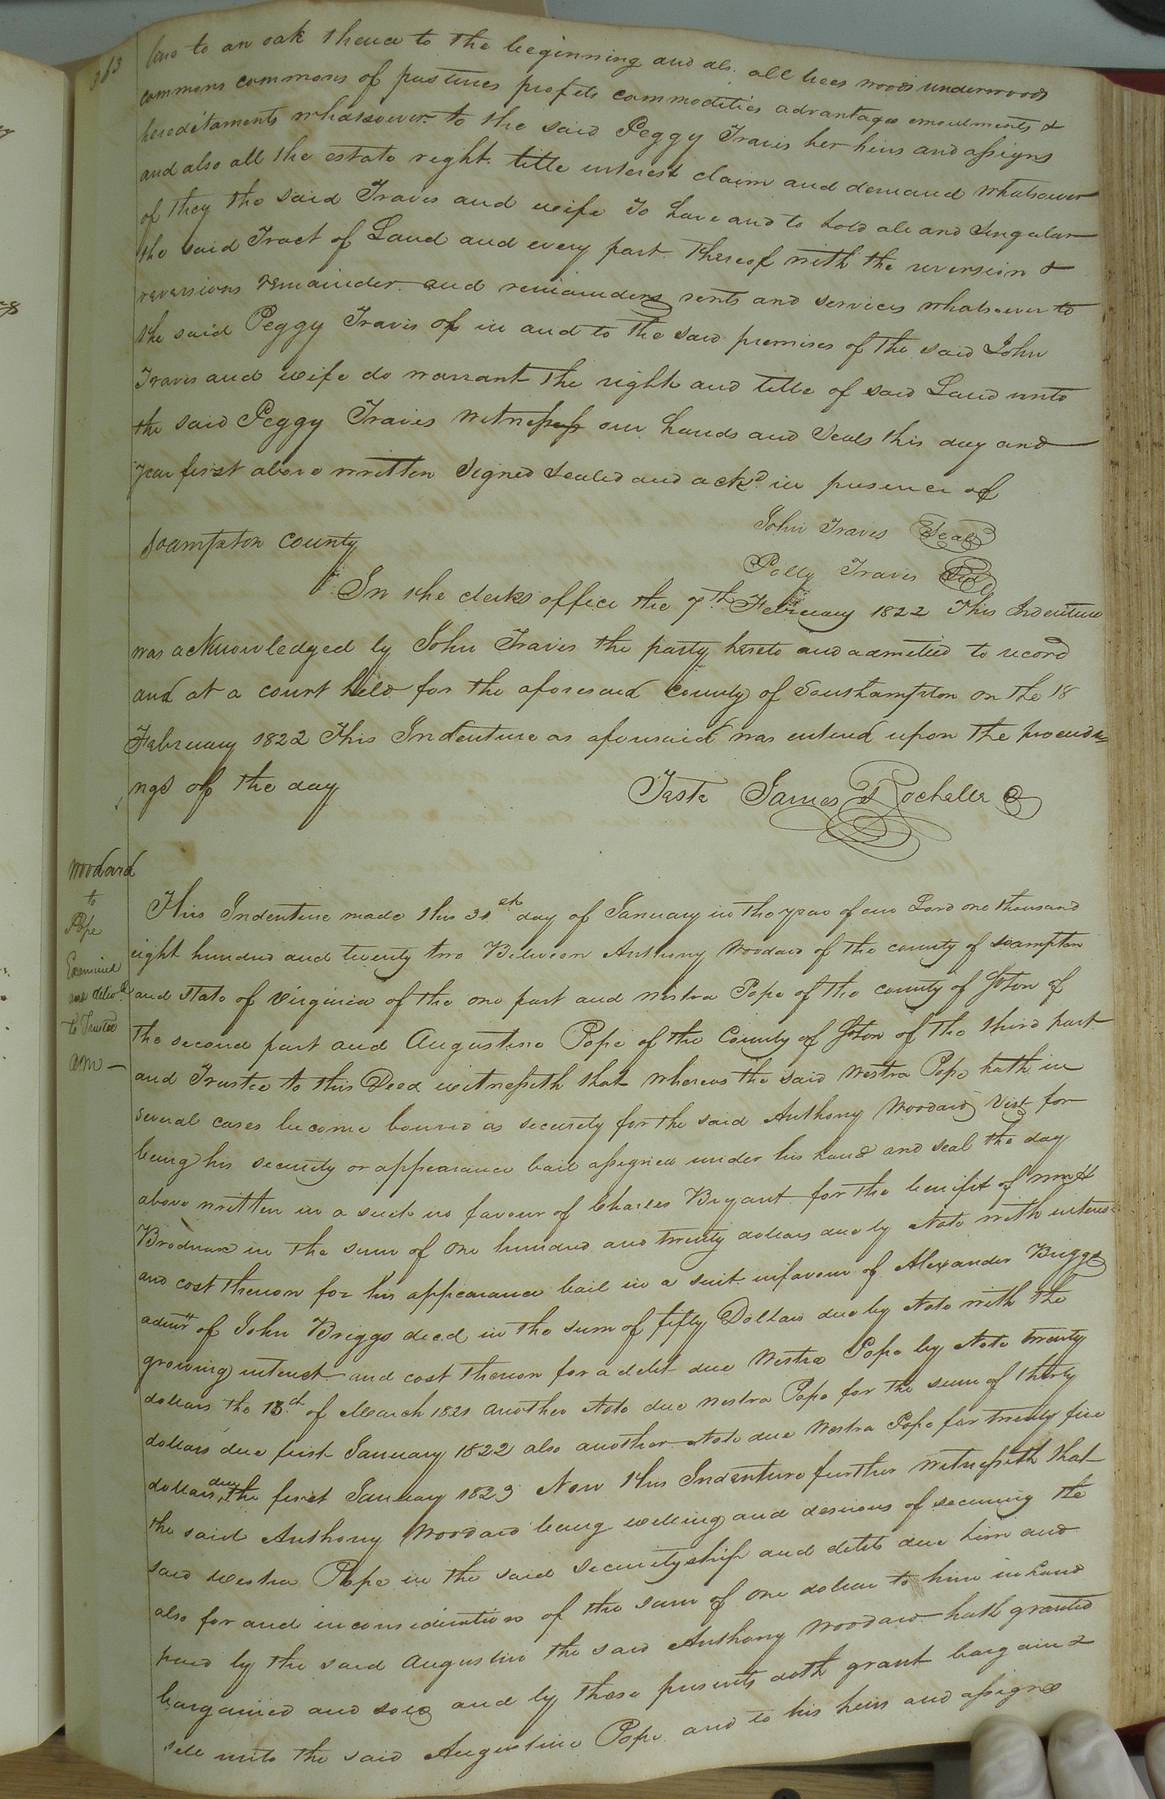 363
to an oak thence to the beginning and als. all trees woods underwoods
commons commons of pastures profits commodities advantages emoluments &
hereditaments whatsoever to the said Peggy Travis her heirs and assigns
and also all the estate right title interest claim and demand whatsoever
of they the said Travis and wife To have and to hold all and singular
the said Tract of Land and every part thereof with the reversion &
reversions remainder and remainders rents and services whatsoever to
the said Peggy Travis of in and to the said premises of the said John
Travis and wife do warrant the right and title of said Land unto
the said Peggy Travis witness our hands and seals this day and
year first above written Signed sealed and ackd in presence of
John Travis Seal
Soampton County
Polly Travis Seal
In the clerks office the 7th February 1822 This Indenture
was acknowledged by John Travis the party hereto and admitted to record
and at a court held for the aforesaid county of Southampton on the 18
February 1822 This Indenture as aforesaid was entered upon the proceedi=
ngs of the day
Teste James Rochelle C
Woodard
to
Pope
Examined
and delivd.
to Trustee
This Indenture made this 31st day of January in the year of our Lord one thousand
eight hundred and twenty two Between Anthony Woodard of the county of Soampton
and state of Virginia of the one part and Westra Pope of the county of Soton of
the second part and Augustine Pope of the County of Soton of the third part
and Trustee to this Deed witnesseth that whereas the said Westra Pope hath in
several cases become bound as security for the said Anthony Woodard Vizt for
being his security or appearance bail assigned under his hand and seal the day
above written in a suit in favour of Charles Bryant for the benifit of
Brodnax in the sum of one hundred and twenty dollars due by Note with interest
and cost thereon for his appearance bail in a suit in favour of Alexander Briggs
admr of John Briggs decd in the sum of fifty Dollars due by Note with the
growing interest and cost thereon for a debt due Westra Pope by Note twenty
dollars the 13d of March 1821 another Note due Westra Pope for the sum of thirty
dollars due first January 1822 also another Note due Westra Pope for twenty five
dollars due the first January 1823 Now this Indenture further witnesseth that
the said Anthony Woodard being willing and desirous of securing the
said Westra Pope in the said securityship and debts due him and
also for and in consideration of the sum of one dollar to him in hand
paid by the said Augustine the said Anthony Woodard hath granted
bargained and sold and by these presents doth grant bargain &
sell unto the said Augustine Pope and to his heirs and assigns